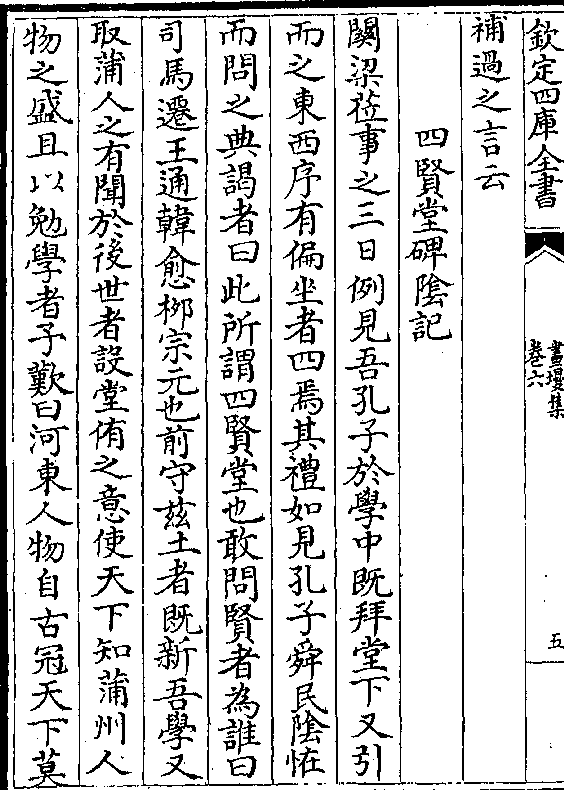 欽定四庫全書
畫墁集
卷六
五
補過之言云
四賢堂碑隂記
闗梁莅事之三日例見吾孔子於學中既拜堂下又引
而之東西序有偏坐者四焉其禮如見孔子舜民隂怪
而問之典謁者曰此所謂四賢堂也敢問賢者為誰曰
司馬遷王通韓愈柳宗元也前守兹土者既新吾學又
取蒲人之有聞於後世者設堂侑之意使天下知蒲州人
物之盛且以勉學者予歎曰河東人物自古冠天下莫